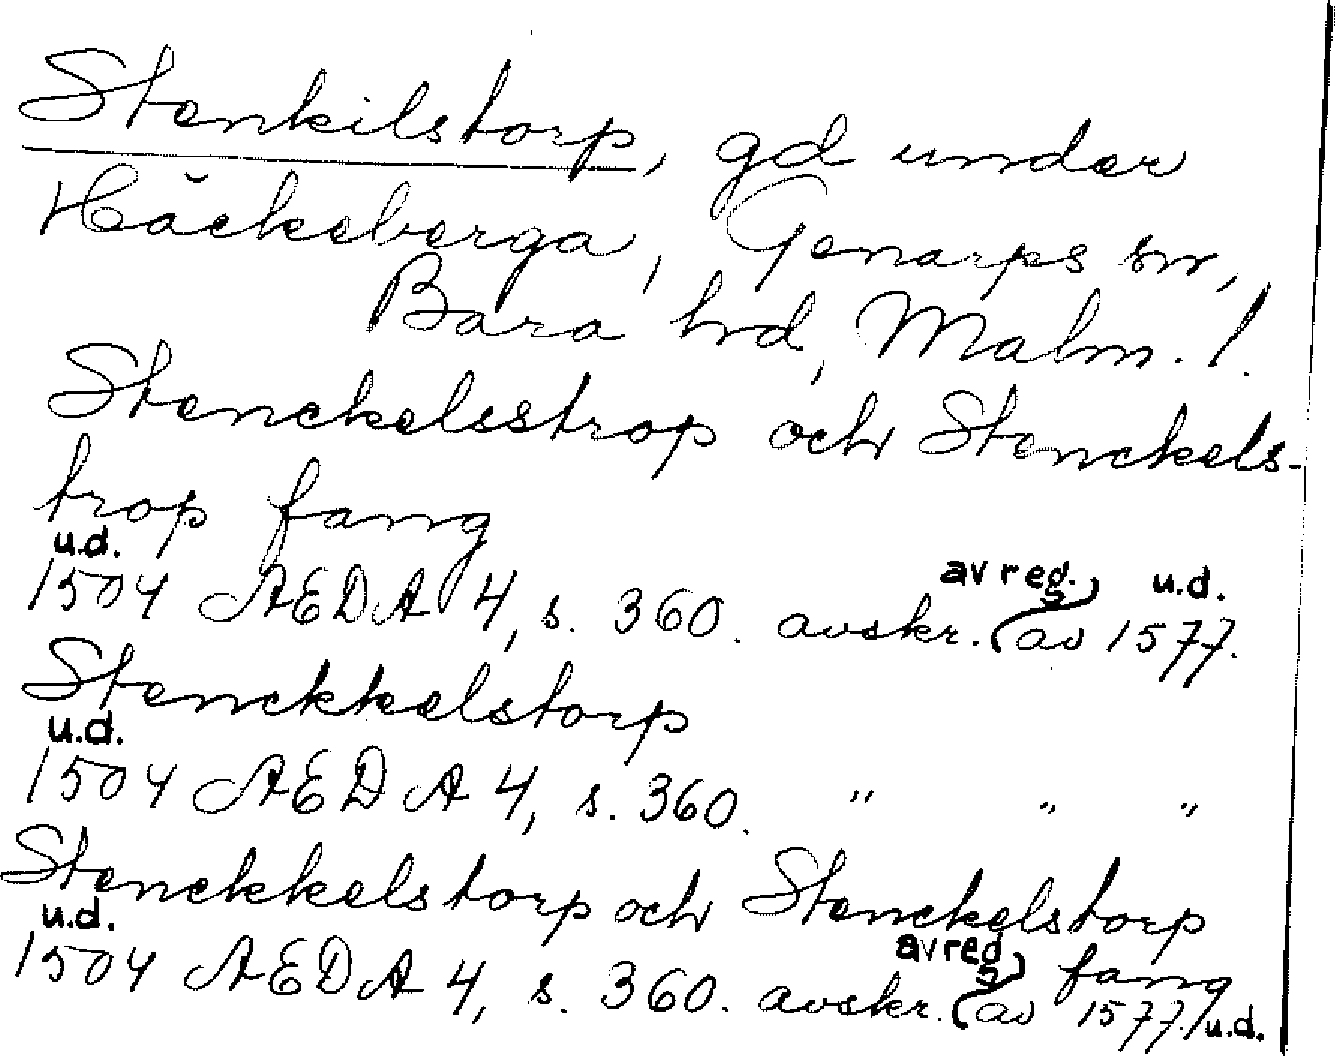 Stenkilstorp, gd under
Häckeberga, Genarps sn,
Bara hd, Malm. l.
Stenckelsstrop och Stenckels-
trop fang
u.d. av reg. u.d.
1504 AEDA 4, s. 360. avskr. (av 1577.
Stenckkelstorp
u.d.
1504 AEDA 4, s. 360. " " "
Stenckkelstorp och Stenckelstorp
u.d. av reg. fang
1504 AEDA 4, s. 360. avskr. (av 1577. u.d.